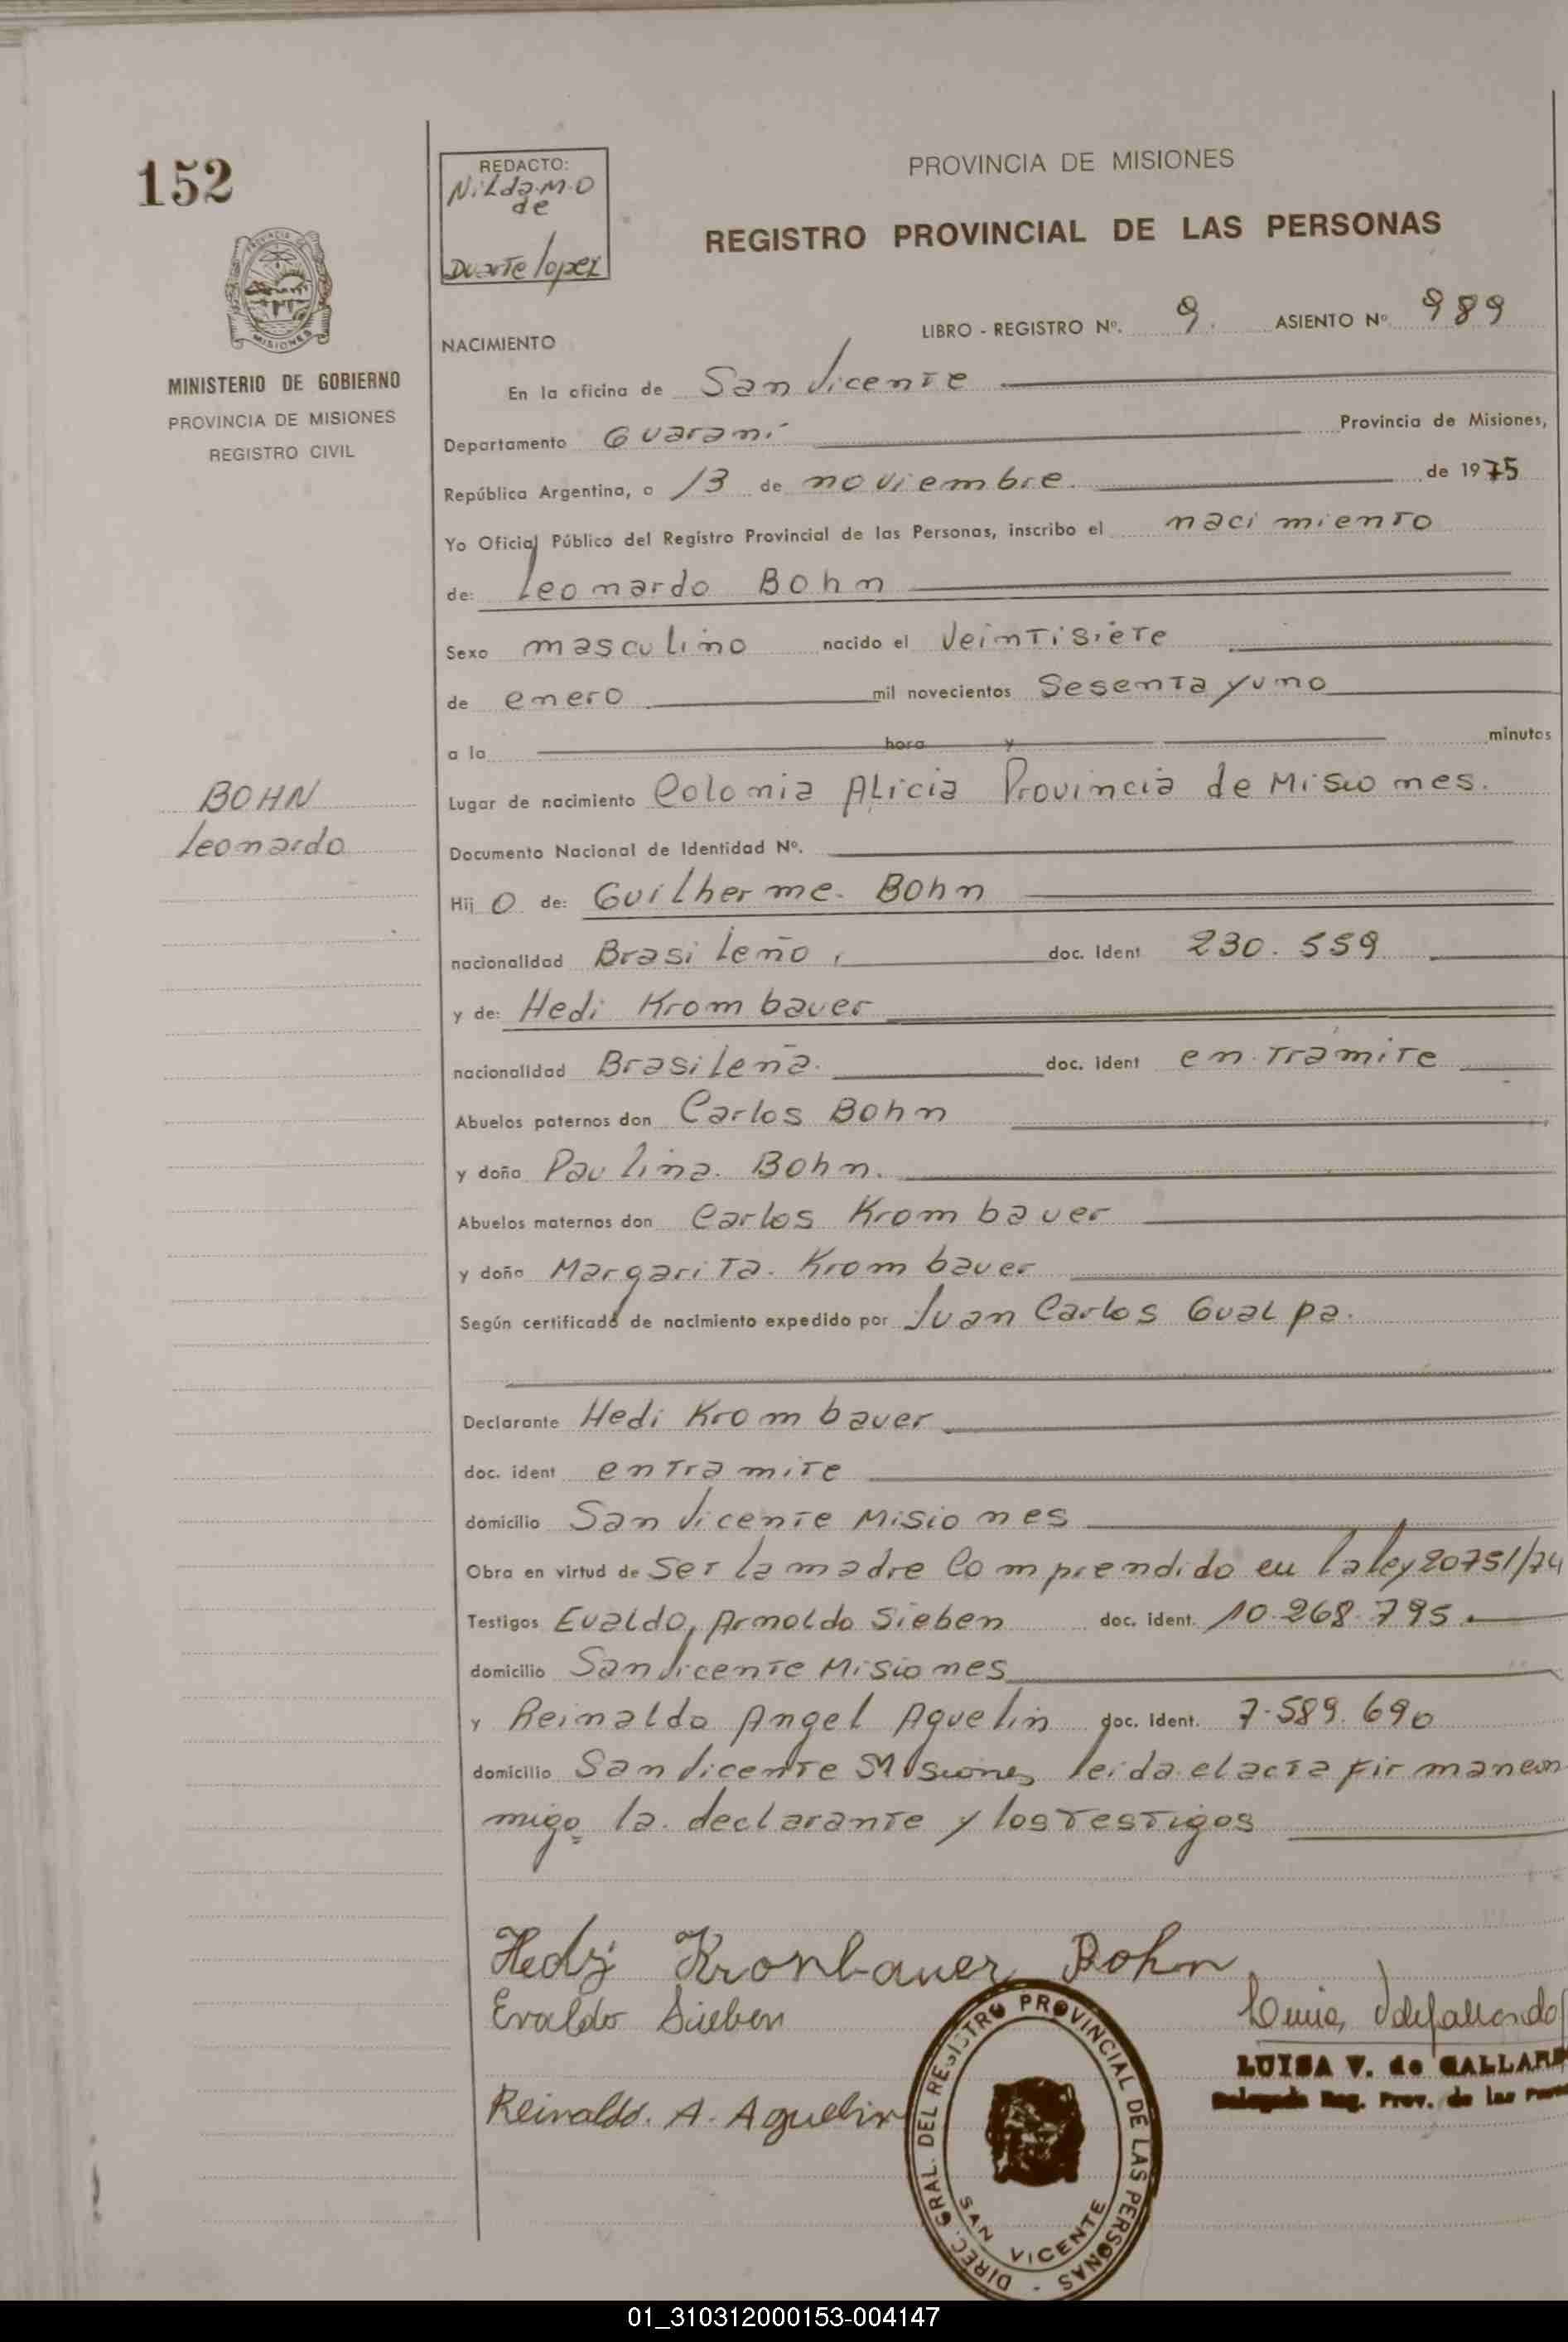 152
REDACTO:
Nilda.M.O
de
Duarte lopez
PROVINCIA DE MISIONES
REGISTRO PROVINCIAL DE LAS PERSONAS
PROVINCIA DE
MISIONES
MINISTERIO DE GOBIERNO
PROVINCIA DE MISIONES
REGISTRO CIVIL
LIBRO - REGISTRO Nº. 9. ASIENTO Nº 989
NACIMIENTO
En la oficina de San Vicente
Departamento Guaraní Provincia de Misiones,
República Argentina, a 13 de noviembre. de 1975
Yo Oficial Público del Registro Provincial de las Personas, inscribo el nacimiento
de: Leonardo Bohn
Sexo masculino nacido el Veintisiete
de enero mil novecientos Sesenta y uno
a la hora y minutos
Lugar de nacimiento Colonia Alicia Provincia de Misiones.
BOHN
Leonardo
Documento Nacional de Identidad Nº.
Hij o de: Guilherme. Bohn
nacionalidad Brasileño, doc. Ident 230.559
y de: Hedi Krombauer
nacionalidad Brasileña. doc. ident en tramite
Abuelos paternos don Carlos Bohn
y doña Paulina. Bohn.
Abuelos maternos don Carlos Krombauer
y doña Margarita. Krombauer
Según certificado de nacimiento expedido por Juan Carlos Gualpa.
Declarante Hedi Krombauer
doc. ident en tramite
domicilio San Vicente Misiones
Obra en virtud de Ser la madre Comprendido en la ley 20751/74
Testigos Evaldo, Arnoldo Sieben doc. ident. 10.268.795.
domicilio San Vicente Misiones
y Reinaldo Angel Aquelin doc. Ident. 7.589.690
domicilio San Vicente Misiones leida el acta firman con
migo la. declarante y los testigos
Hedi Kronbauer Bohn
Evaldo Sieben
Reinaldo. A. Aquelin
LUISA V. de GALLARD
Delegada Reg. Prov. de las Pers
DIREC. GRAL. DEL REGISTRO PROVINCIAL DE LAS PERSONAS -
SAN VICENTE
01_310312000153-004147